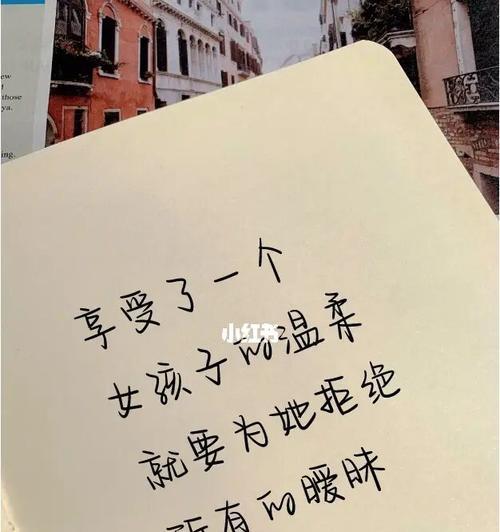 ew
those
ya.
ing.
享受了一个
小红书
女孩子的温柔
就要为她拒绝
所有的暧昧